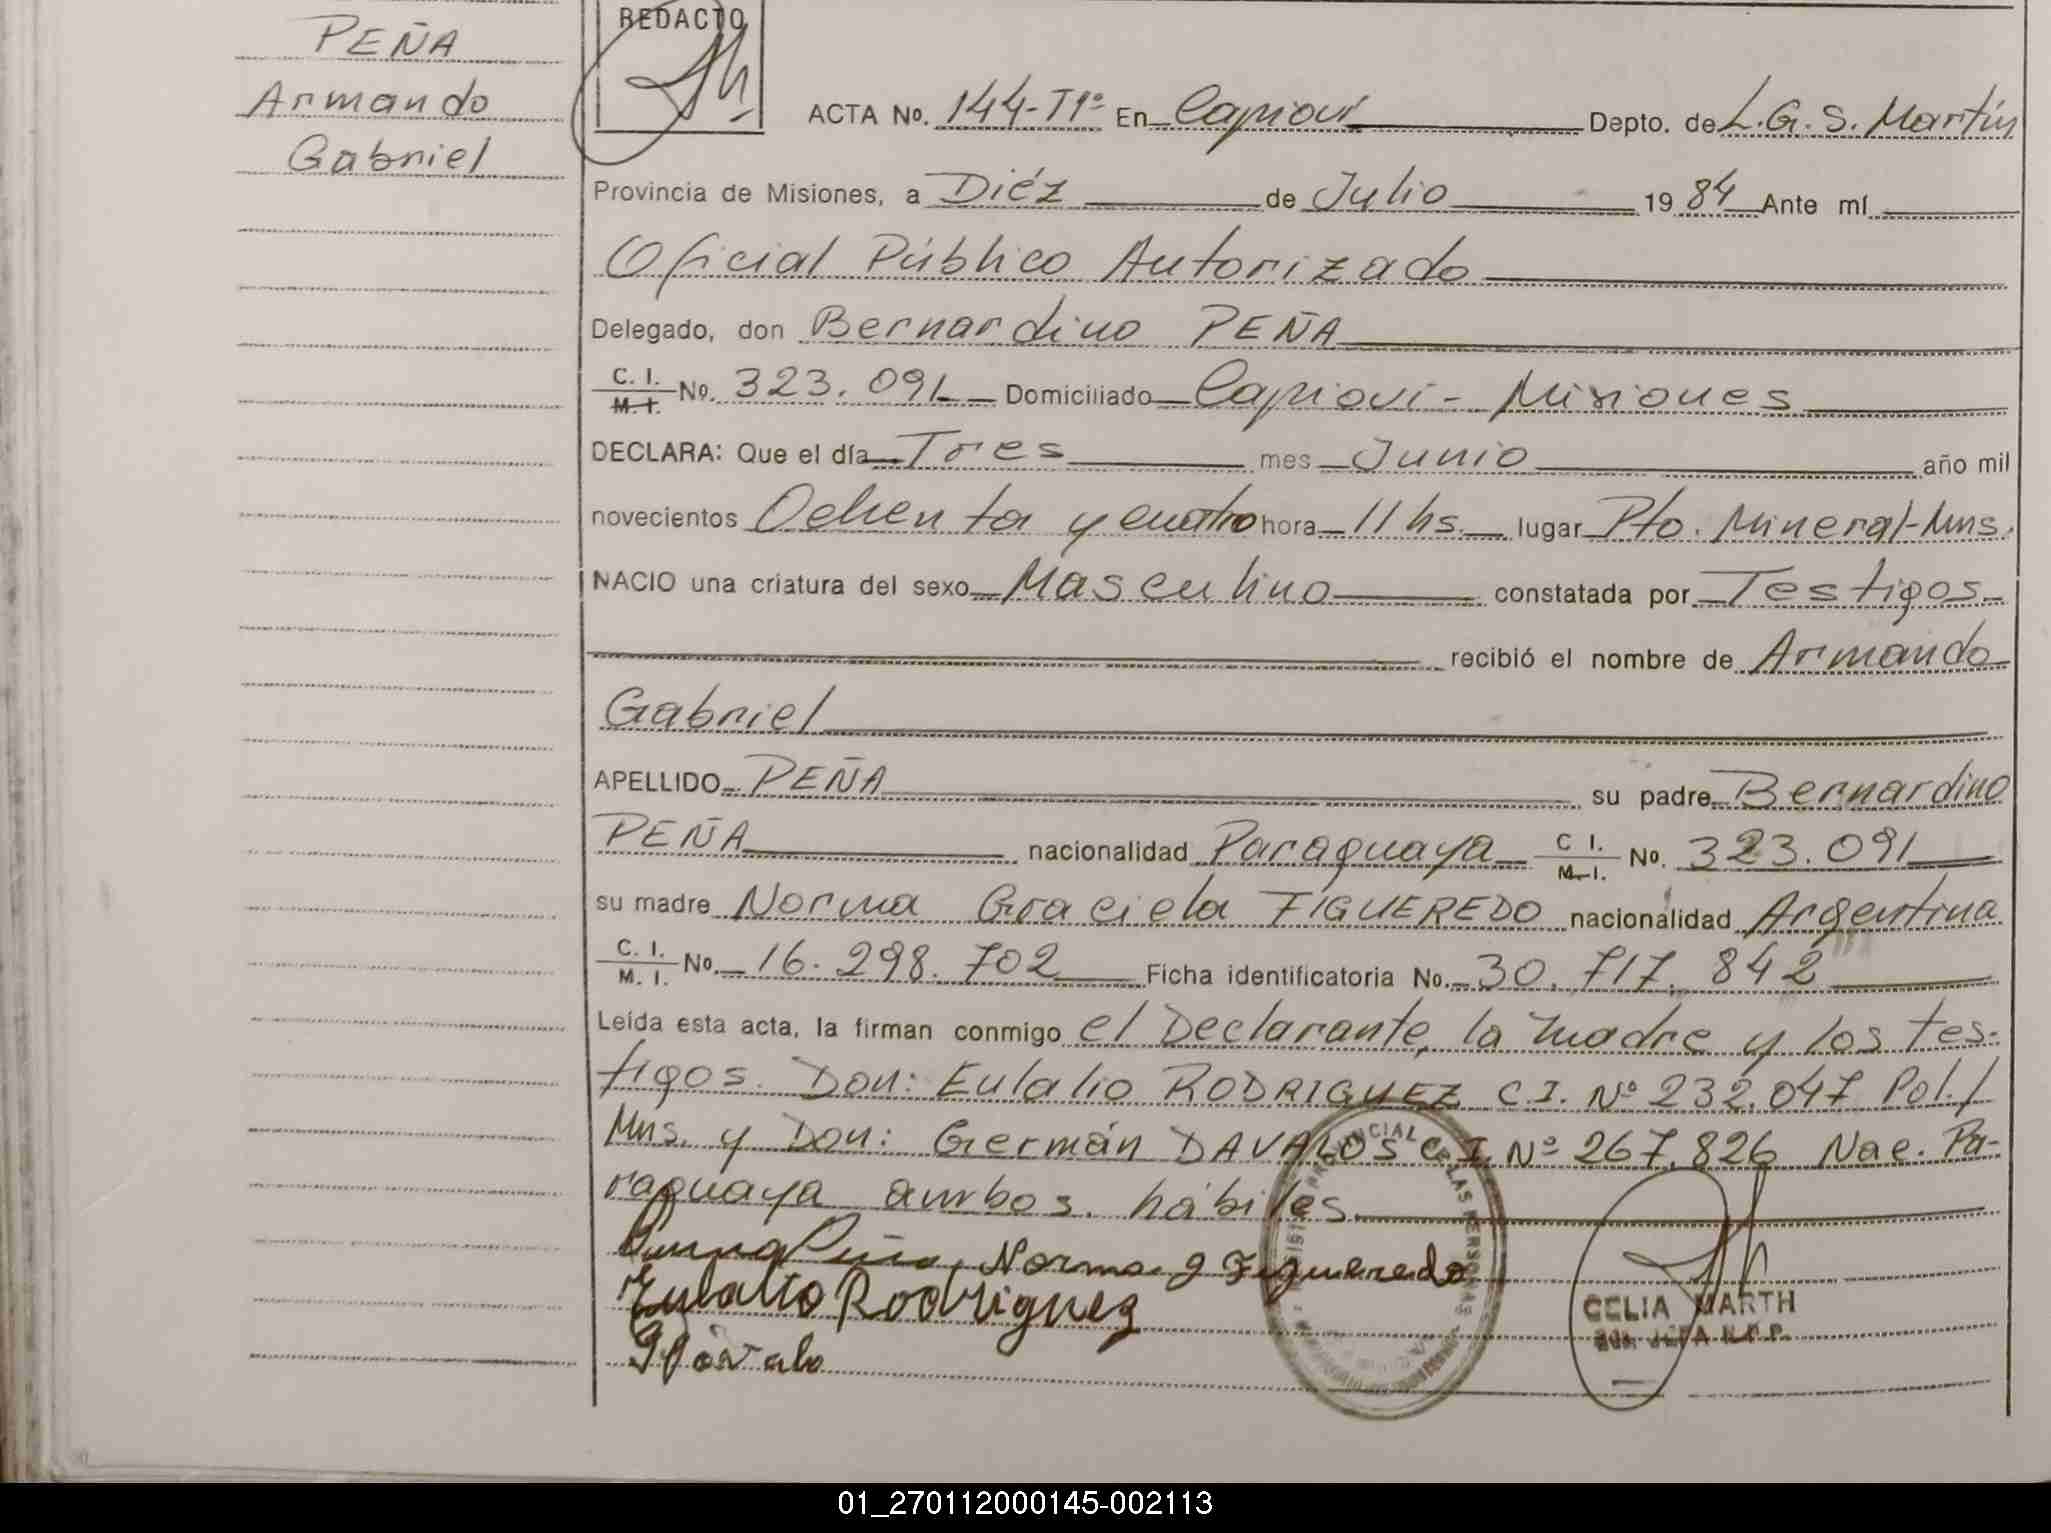 PEÑA
Armando
Gabriel
REDACTO
ACTA No. 144-T1º En Capiovi Depto. de L.G.S. Martín
Provincia de Misiones, a Diéz de Julio 1984 Ante mí
Oficial Público Autorizado
Delegado, don Bernardino PEÑA
C. I. M. I. No. 323.091 Domiciliado Capiovi - Misiones
DECLARA: Que el día Tres mes Junio año mil
novecientos Ochenta y cuatro hora 11 hs. lugar Pto. Mineral-Mns.
NACIO una criatura del sexo Masculino constatada por Testigos
recibió el nombre de Armando
Gabriel
APELLIDO PEÑA su padre Bernardino
PEÑA nacionalidad Paraguaya C I. M. I. No. 323.091
su madre Norma Graciela FIGUEREDO nacionalidad Argentina
C. I. M. I. No. 16.298.702 Ficha identificatoria No. 30.717.842
Leída esta acta, la firman conmigo el Declarante, la madre y los tes-
tigos. Don: Eulalio RODRIGUEZ C.I. Nº 232.047 Pol./
Mns. y Don: Germán DAVALOS C.I. Nº 267.826 Nac. Pa-
raguaya ambos. hábiles.
Peña, Norma g Figueredo
Eulalio Rodriguez
CELIA MARTH
JEFA R.P.P.
PROVINCIAL DE LAS PERSONAS
01_270112000145-002113